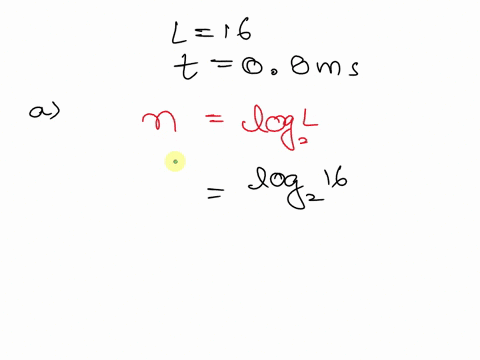 L = 16
t = 0.8ms
a) n = log₂ L
= log₂ 16